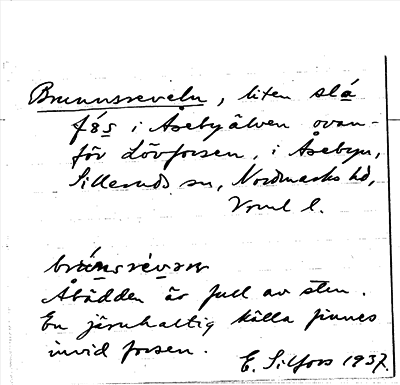 Brunnsreveln, liten slá
fós i Åsebyälven ovan-
för Lövforsen, i Åsebyn,
Silleruds sn, Nordmarks hd,
Vrml l.
brúnsrévəɴ
Åbädden är full av sten.
En järnhaltig källa finnes
invid forsen.
E. Silfors 1937.